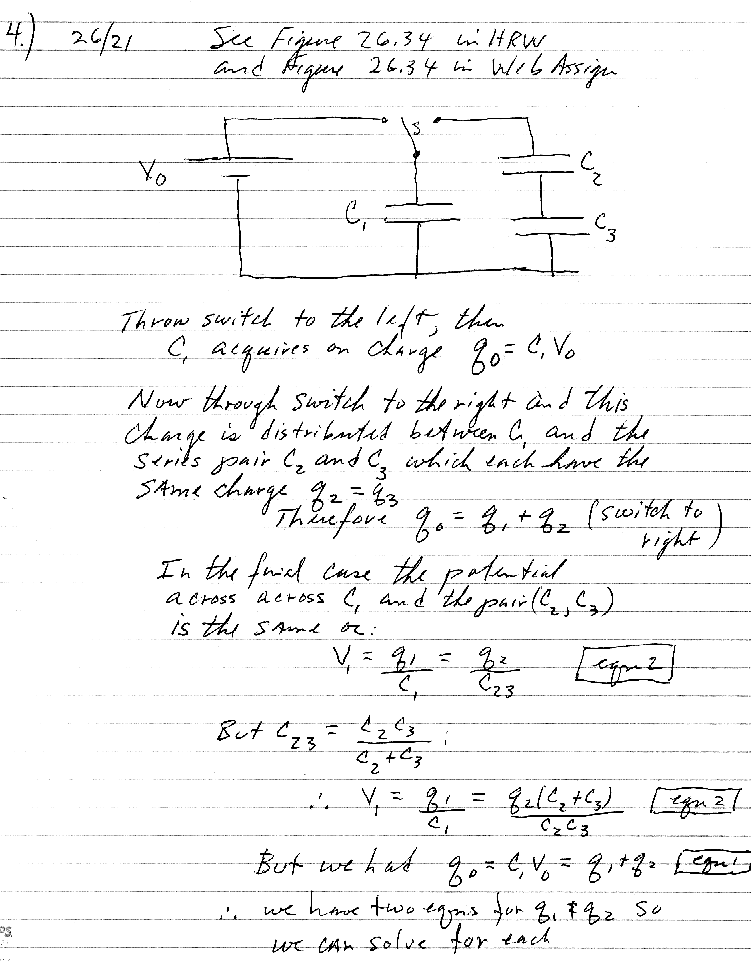 4.) 26/21 See Figure 26.34 in HRW
and Figure 26.34 in Web Assign
S
V₀
C₁
C₂
C₃
Throw switch to the left, then
C₁ acquires an charge q₀ = C₁V₀
Now through switch to the right and this
charge is distributed between C₁ and the
series pair C₂ and C₃ which each have the
same charge q₂ = q₃
Therefore q₀ = q₁ + q₂ (switch to
right)
In the final case the potential
across across C₁ and the pair (C₂, C₃)
is the same or:
V₁ = q₁/C₁ = q₂/C₂₃ [eqn 2]
But C₂₃ = C₂C₃/(C₂+C₃) ;
∴ V₁ = q₁/C₁ = q₂(C₂+C₃)/C₂C₃ [eqn 2]
But we had q₀ = C₁V₀ = q₁+q₂ [eqn 1
∴ we have two eqns for q₁ & q₂ so
we can solve for each
PS